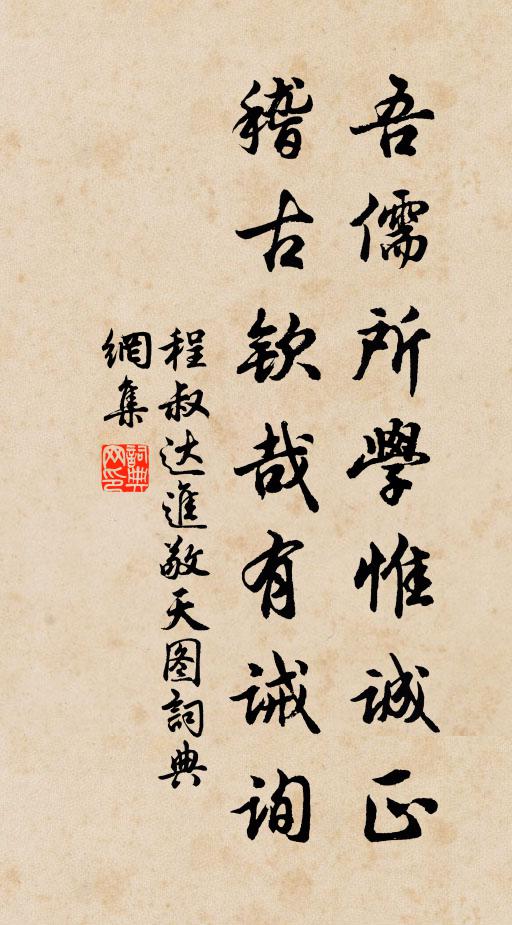 吾儒所學惟誠正
稽古欽哉有誡詢
程叔达進敬天图詞典
網集
詞典
网印